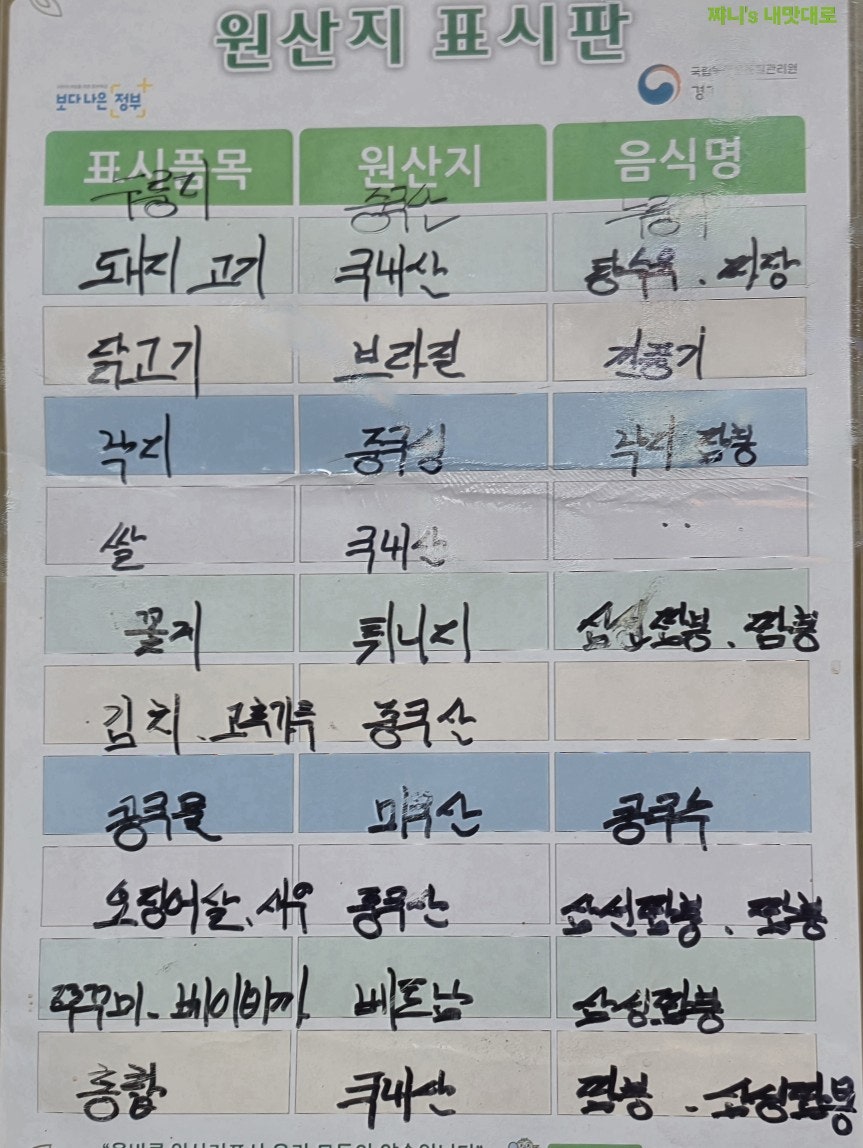 쨔니's 내맛대로
원산지 표시판
보다나은 정부
표시품목 원산지 음식명
누룽지 중국산 누룽지
돼지고기 국내산 탕수육. 짜장
닭고기 브라질 깐풍기
낙지 중국산 낙지 짬뽕
쌀 국내산
튀니지 삼선짬뽕. 짬뽕
김치. 고추가루 중국산
콩국물 미국산 콩국수
오징어살. 새우 중국산 삼선짬뽕. 짬뽕
쭈꾸미. 베트남 삼선짬뽕
홍합 국내산 짬뽕. 삼선짬뽕